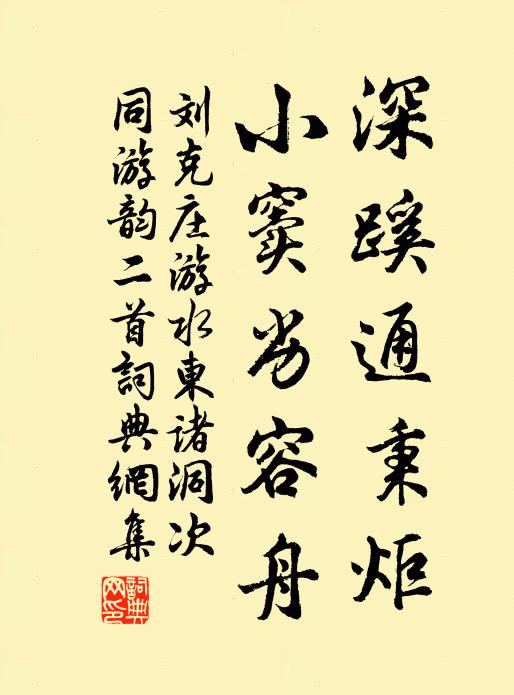 深蹊通秉炬
小窦劣容舟
刘克庄游水東諸洞次
同游韵二首詞典網集
詞典网印